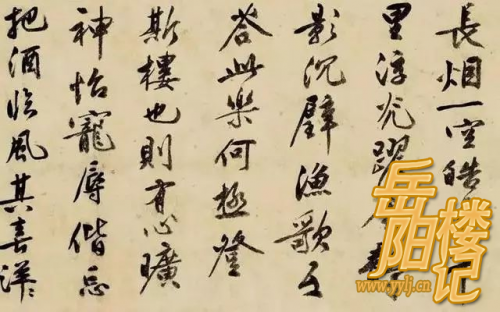 長烟一空皓
里浮光躍金静
影沉璧漁歌互
答此樂何極登
斯樓也則有心曠
神怡寵辱偕忘
把酒临風其喜洋〻
岳阳楼记
www.yylj.cn